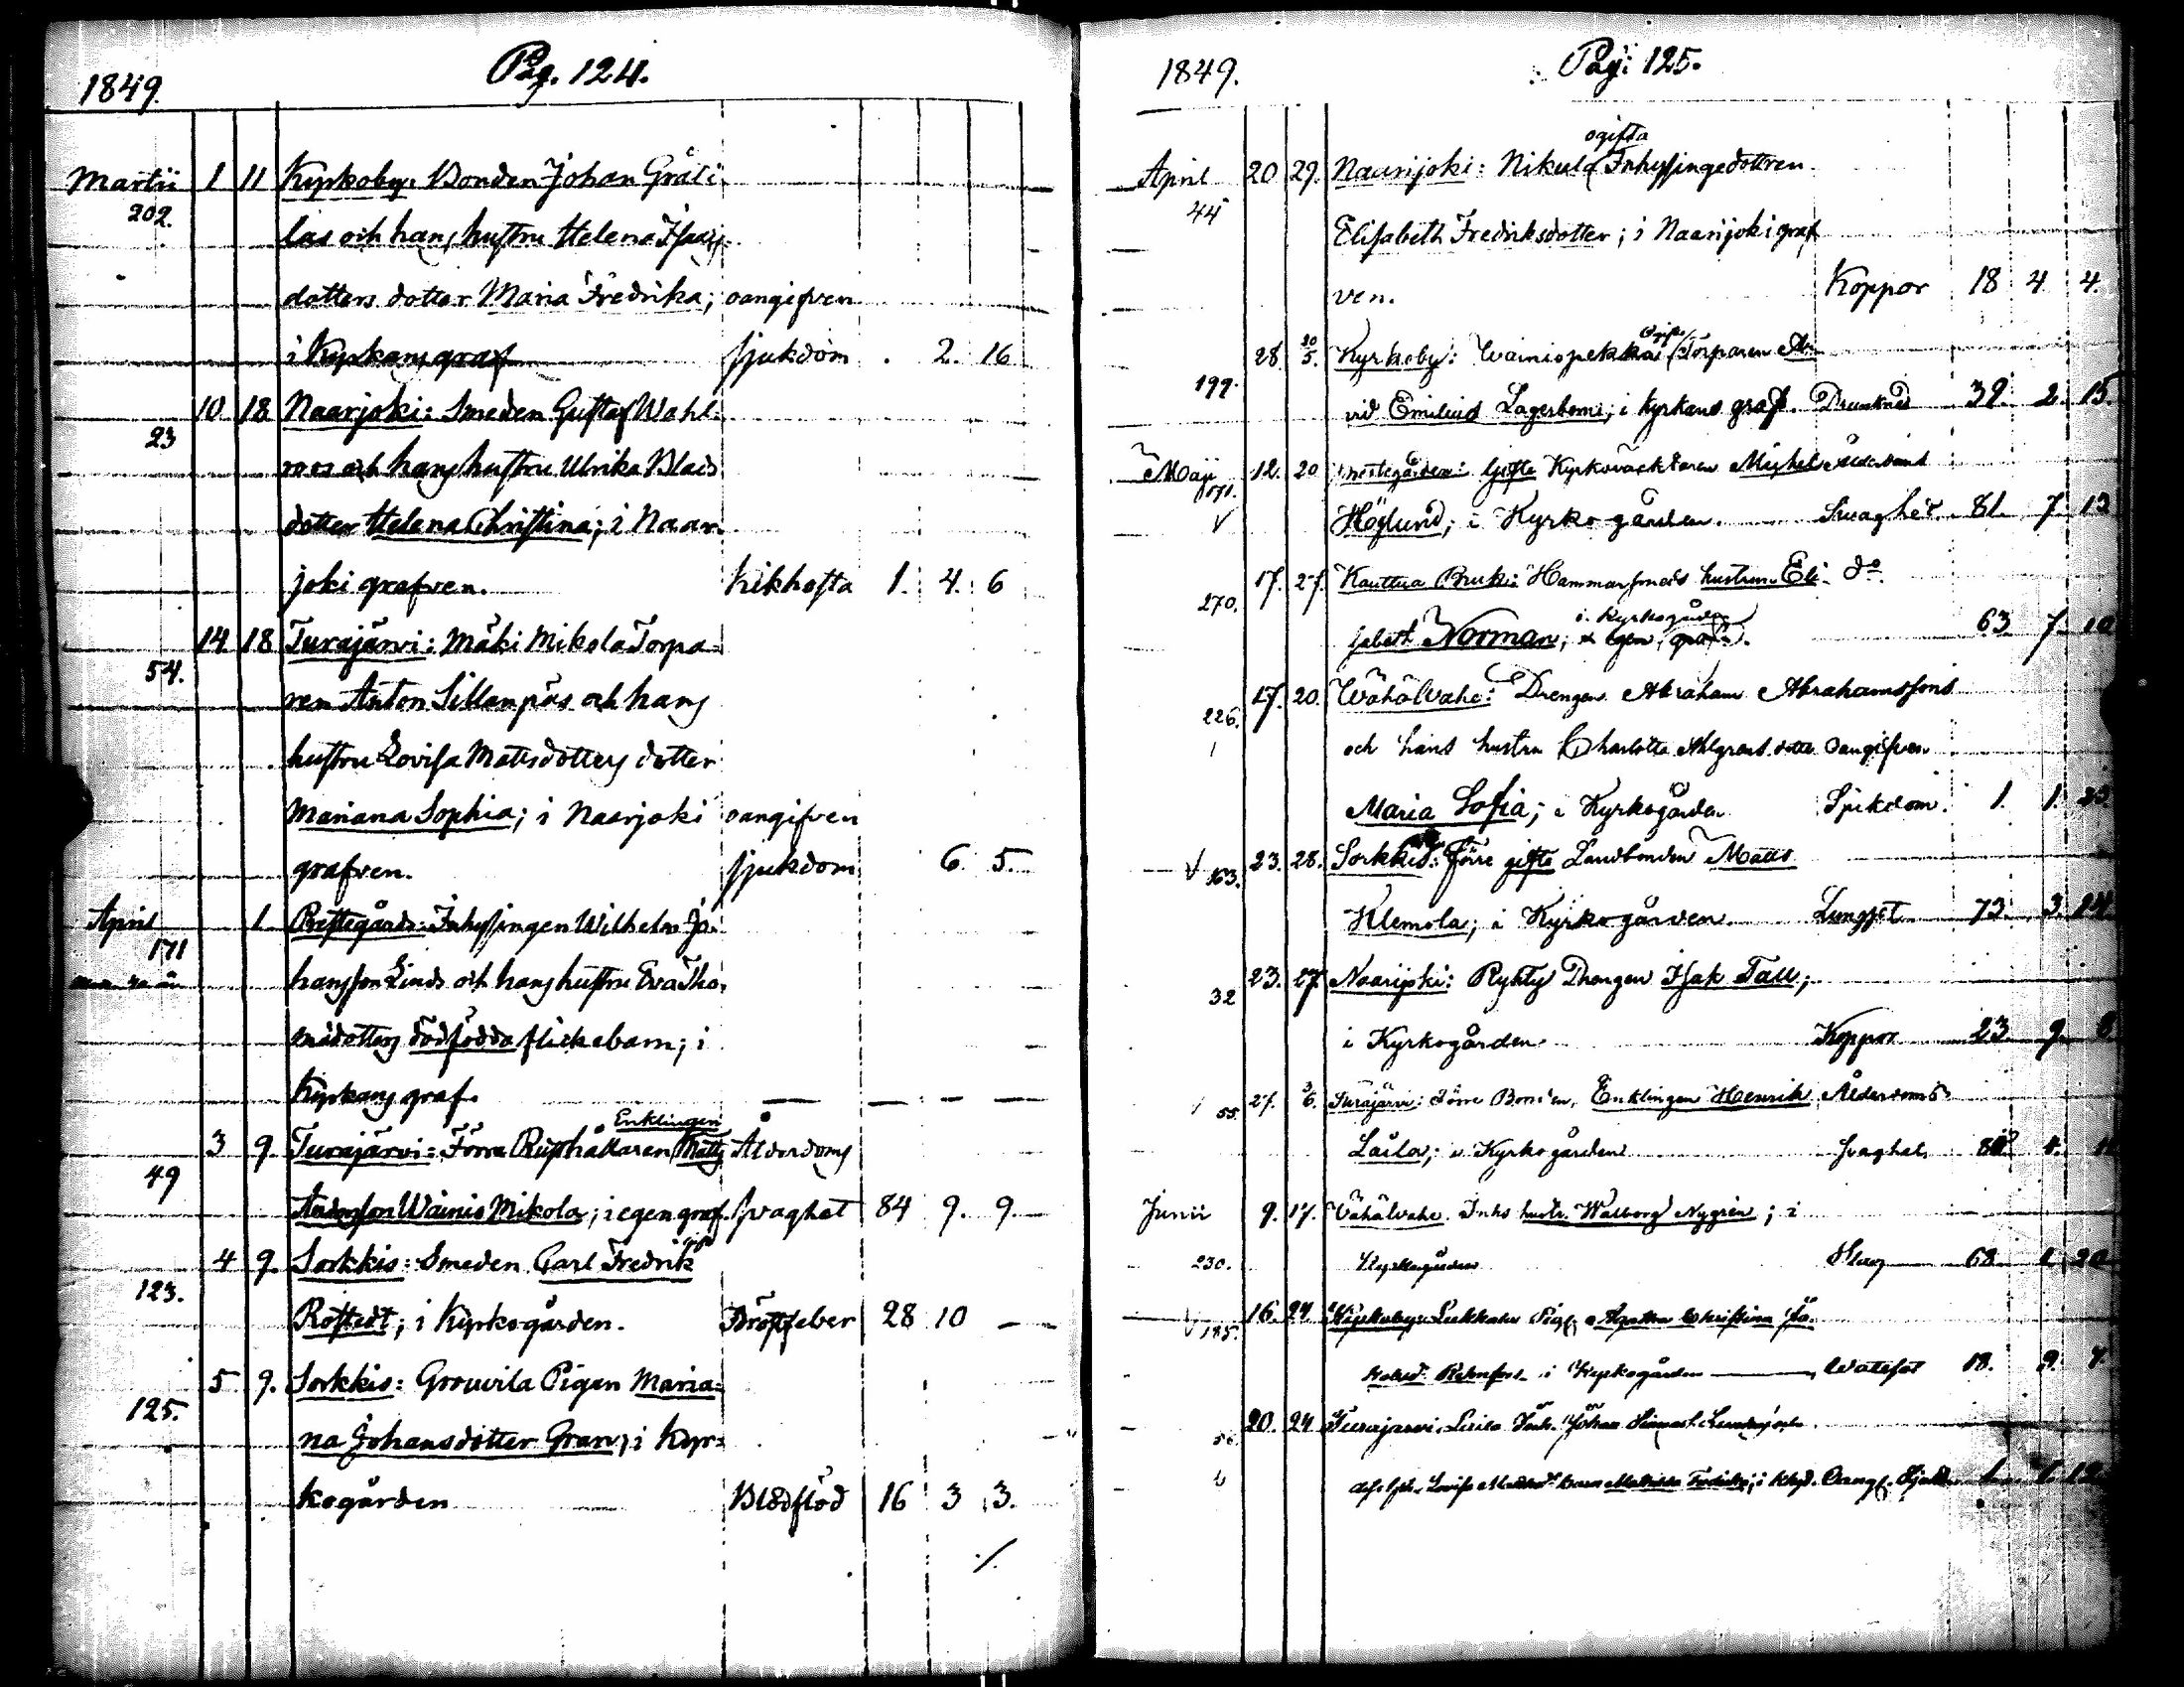 Pag. 124.
1849.
Martii 1 11 Kyrkoby: Bonden Johan Gråti-
202.
las och hans hustru Helena Isaks-
dotters dotter Maria Fredrika; oangifven
i Kyrkans graf sjukdom . 2. 16
10 18 Naarjoki: Smeden Gustaf Wahl-
23
roos och hans hustru Ulrika Blads
dotter Helena Christina; i Naar-
joki grafven. kikhosta 1. 4. 6
14 18 Turajärvi: Mäki Mikola Torpa-
54.
ren Anton Sillanpääs och hans
hustru Lovisa Mattsdotters dotter
Mariana Sophia; i Naarjoki oangifven
grafven. sjukdom 6. 5.
April 1. Prestegård: Inhysingen Wilhelm Jo-
171
hansson Linds och hans hustru Eva Tho-
madotters dödfödda flickebarn; i
Kyrkans graf. — — — —
Enklingen
3 9. Turajärvi: Förra Rusthållaren Matts Ålderdoms
49
Andersson Wainio Mikola; i egen graf. svaghet 84 9. 9.
4 9. Sorkkis: Smeden Carl Fredrik
123.
Rostedt; i Kyrkogården. Bröstfeber 28 10 —
5 9. Sorkkis: Grouvila Pigan Maria-
125.
na Johansdotter Gran; i Kyr-
kogården Blodflöd 16 3 3.
./.
1849. Pag: 125.
ogifta
April 20 29. Naarijoki: Nikula Inhysingedottren
44
Elisabeth Fredriksdotter; i Naarijoki graf
ven. Koppor 18 4 4.
28. 20/5. Kyrkoby: Wainiopekkas Torparen
199.
Emilius Lagerbom; i kyrkans graf. Drunknad 39. 2. 15.
Maji 12. 20 Prestegården: Gifte Kyrkovacktaren Michel Ålderdoms
171.
Höglund; i Kyrkogården. Svaghet. 81. 7. 13
17. 27. Kauttua Bruk: Hammarsmeds hustrun Eli- do.
270.
i Kyrkogården
sabeth Norman; 63. 7. 10
17. 20. Wähälvahe: Drengen Abraham Abrahamssons
226.
och hans hustru Charlotta Ahlgrens dotter oangifven
Maria Sofia; i Kyrkogården Sjukdom. 1. 1. 23
23. 28. Sorkkis: Förre gifte Landbonden Matts
V 163.
Klemola; i Kyrkogården. Lungsot 73. 3. 14
23. 27. Naarijoki: Rykty Drengen Isak Tall;
32
i Kyrkogården Koppor 23. 9. 8
27. 3/6. Turajärvi: Förre Bonden, Enklingen Henrik Ålderdoms
55.
Laila; i Kyrkogården svaghet.
Junii 9. 17. Vähälvahe. Inhs hustr. Walborg Nygrén; i
230.
Kyrkogården Slag 68. 1. 20
16. 24. Kyrkoby: Lukkalas Pig. Agatha Christina
V 185.
i Kyrkogården — Wattusot 18. 9. 7.
20. 24 Turajärvi: Inh. Johan
56.
Lovisa i Kkgd. Oangf. Sjukd. 1.